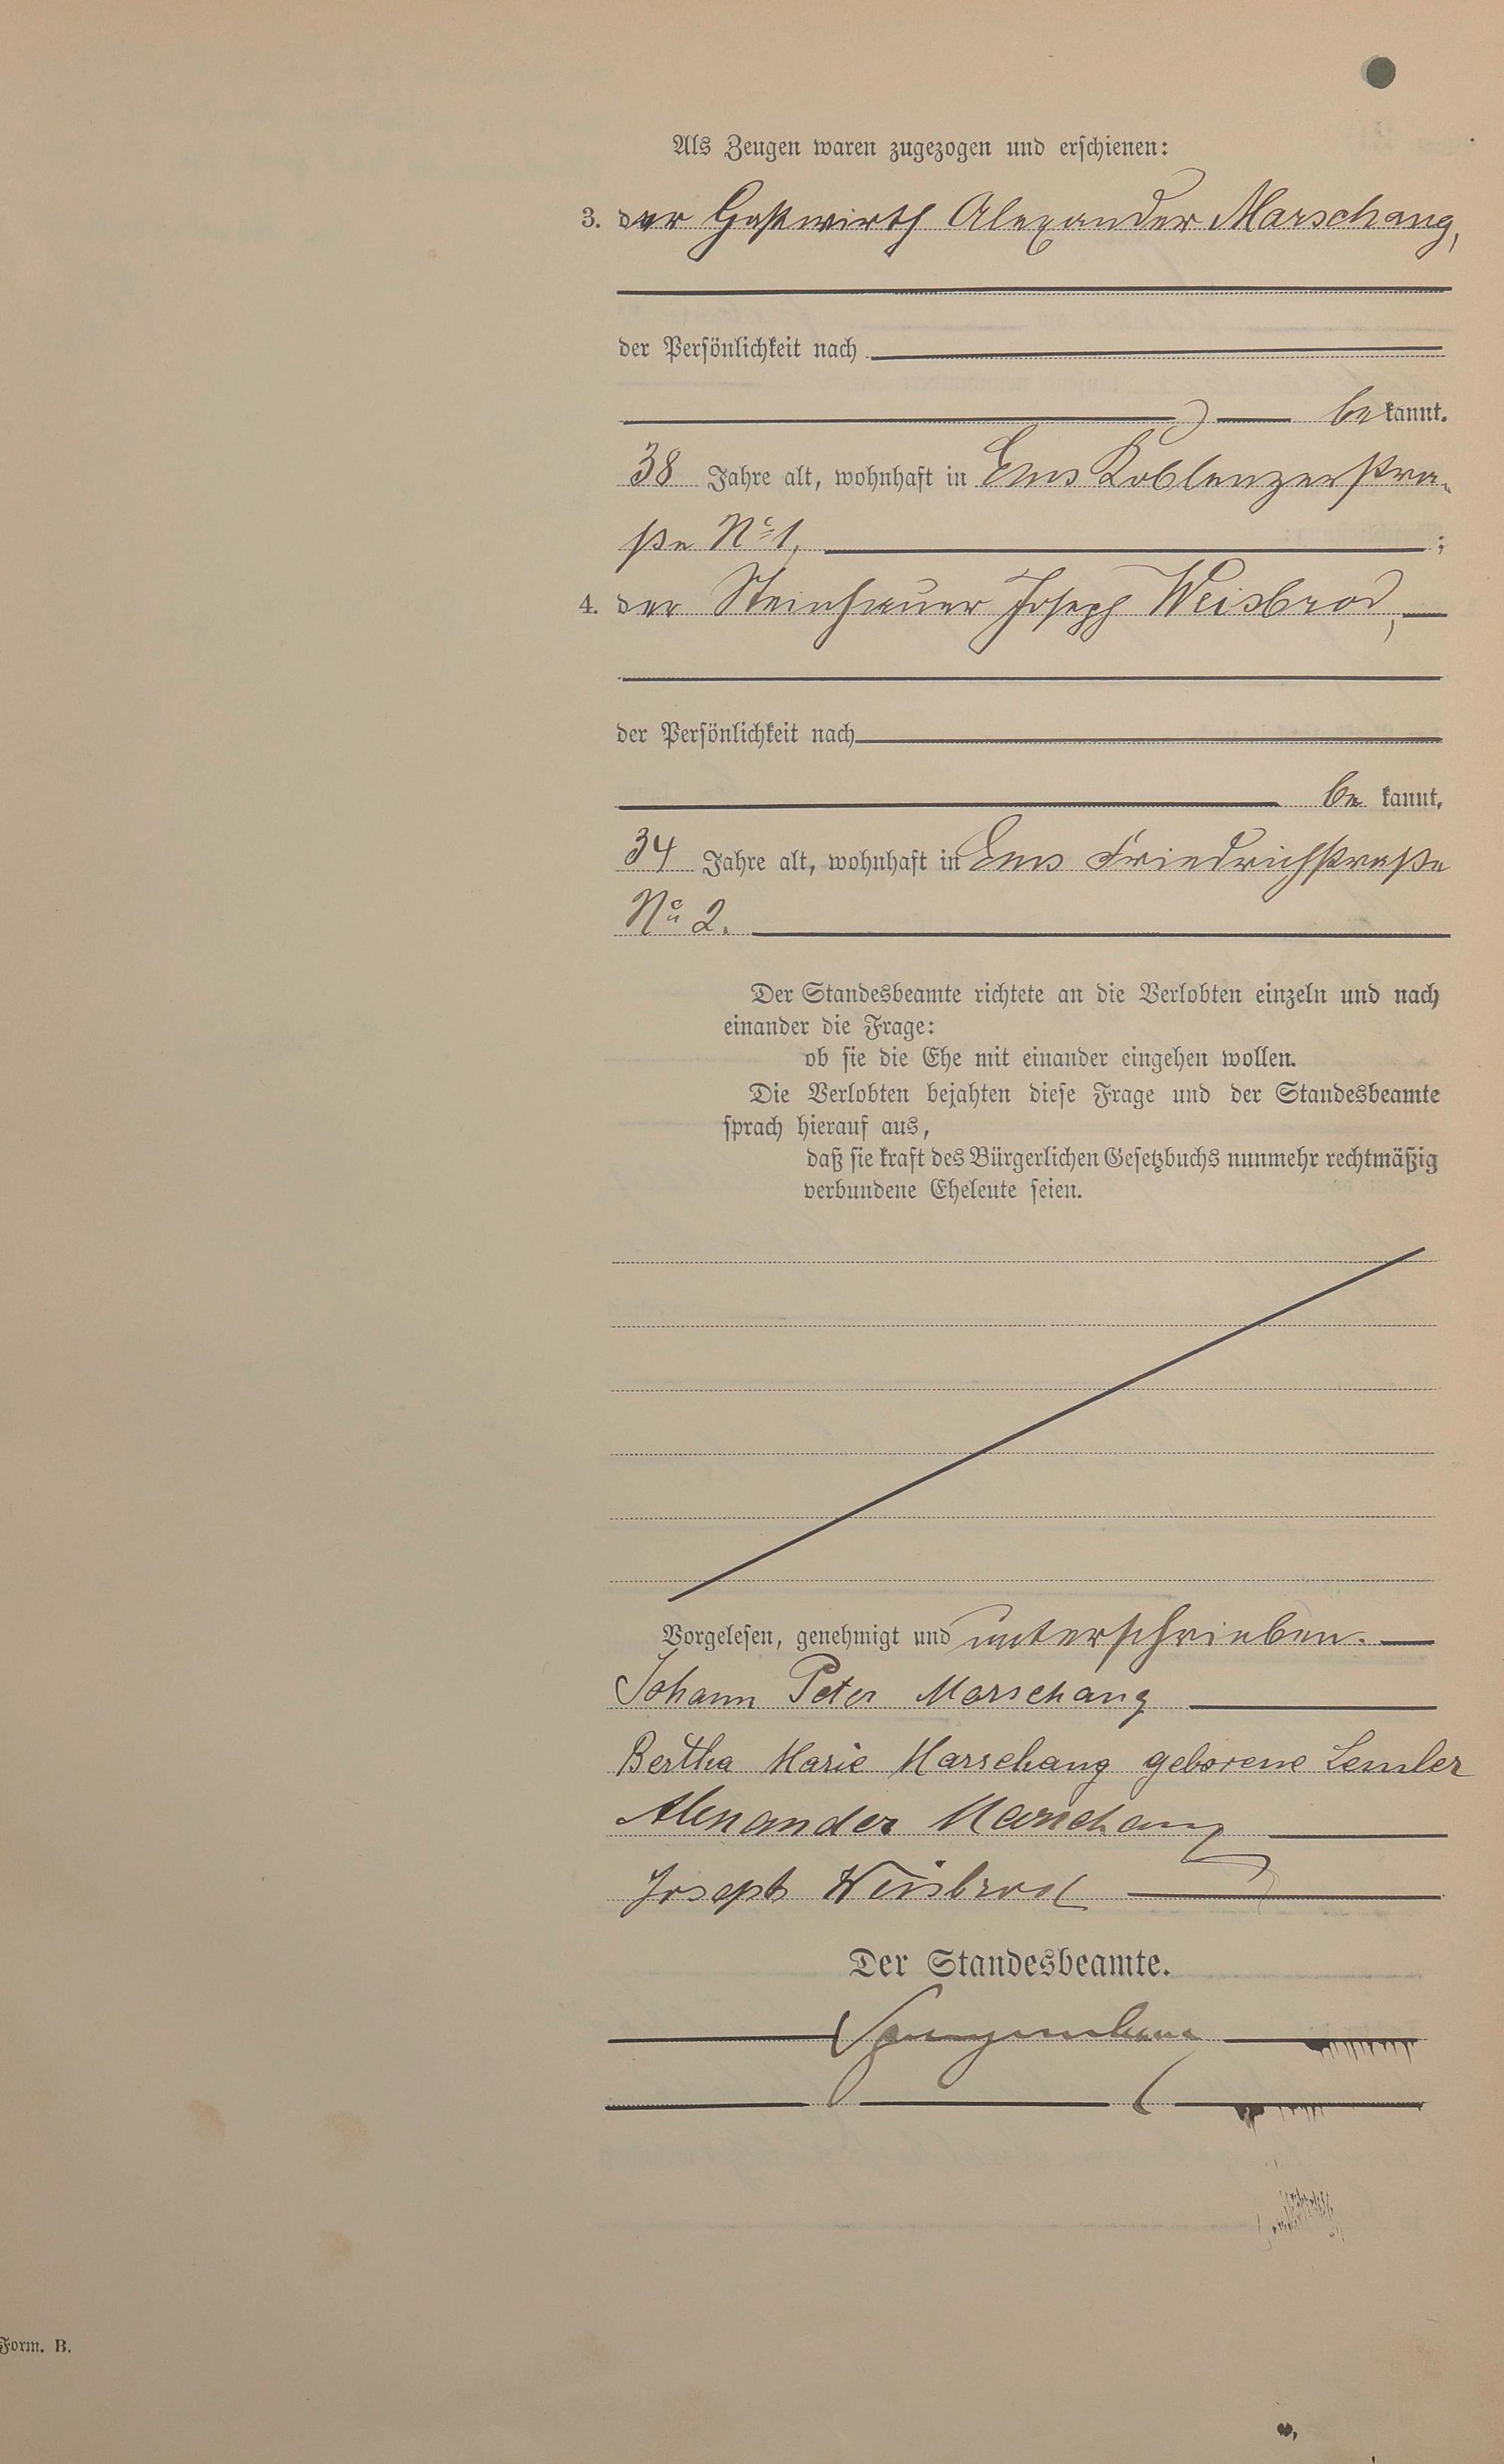 Als Zeugen waren zugezogen und erschienen:
3. der Gastwirth Alexander Marschang,
der Persönlichkeit nach
bekannt.
38 Jahre alt, wohnhaft in Ems Koblenzerstra-
ße No 1, ;
4. der Steinhauer Joseph Weisbrod,
der Persönlichkeit nach
be kannt,
34 Jahre alt, wohnhaft in Ems Friedrichstraße
No 2.
Der Standesbeamte richtete an die Verlobten einzeln und nach
einander die Frage:
ob sie die Ehe mit einander eingehen wollen.
Die Verlobten bejahten diese Frage und der Standesbeamte
sprach hierauf aus,
daß sie kraft des Bürgerlichen Gesetzbuchs nunmehr rechtmäßig
verbundene Eheleute seien.
Vorgelesen, genehmigt und unterschrieben.
Johann Peter Marschang
Bertha Marie Marschang geborene Lemler
Alexander Marschang
Joseph Weisbrod
Der Standesbeamte.
Form. B.